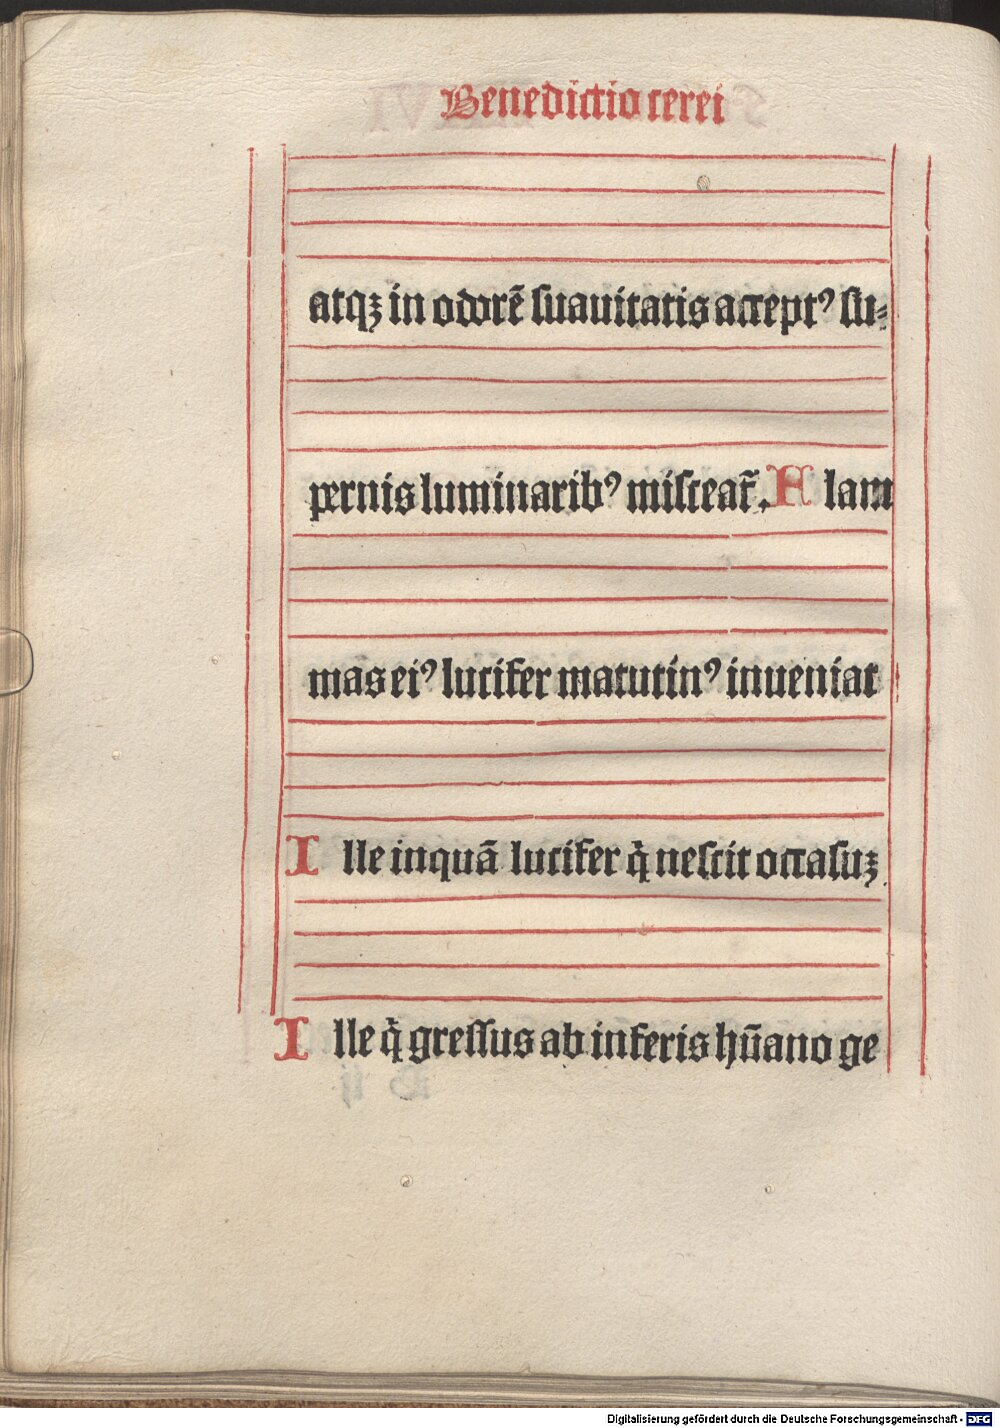 Benedictio cerei
atqꝫ in odorē suauitatis accept⁹ su⸗
pernis luminarib⁹ misceat᷑. F lam
mas ei⁹ lucifer matutin⁹ inueniat
I lle inquā lucifer q̇ nescit occasuꝫ
I lle q̇ gressus ab inferis hūano ge
Digitalisierung gefördert durch die Deutsche Forschungsgemeinschaft - DFG